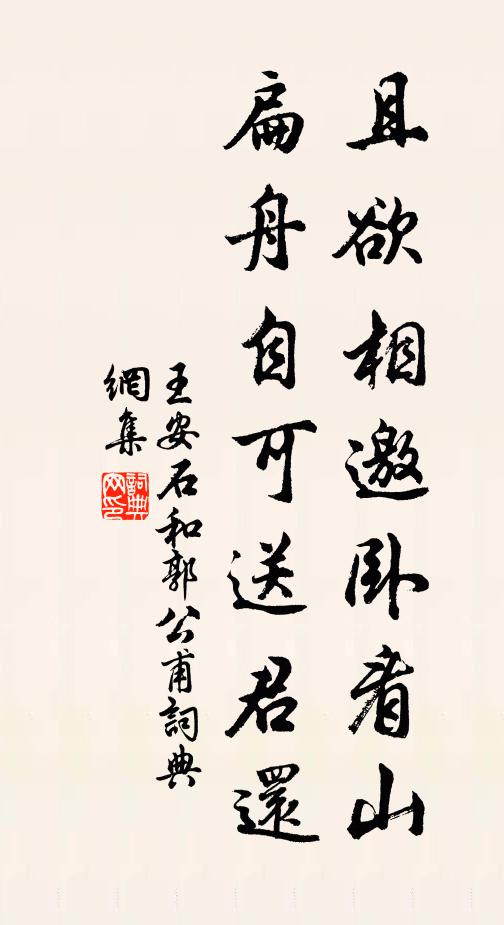 且欲相邀卧看山
扁舟自可送君還
王安石和郭公甫詞典
網集
詞典
网印